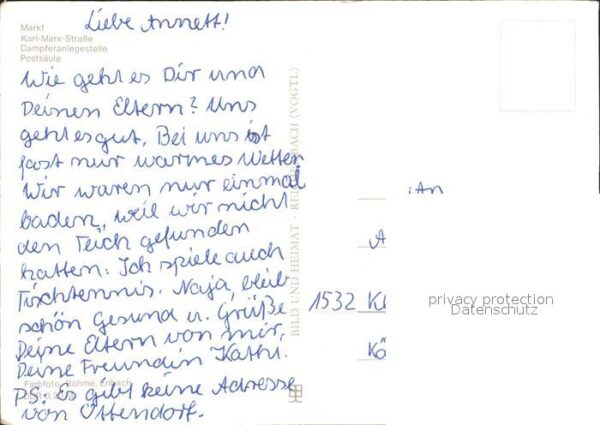 Markt
Karl-Marx-Straße
Dampferanlegestelle
Postsäule
Liebe Annett!
Wie geht es Dir und
Deinen Eltern? Uns
geht es gut. Bei uns ist
fast nur warmes Wetter
Wir waren nur einmal
baden, weil wir nicht
den Teich gefunden
hatten. Ich spiele auch
Tischtennis. Naja, bleib
schön Gesund u. Grüße
Deine Eltern von mir,
Deine Freundin Kathr.
PS: Es gibt keine Adresse
von Ottendorf.
Farbfoto: Böhme, Erlbach
BILD UND HEIMAT · REICHENBACH (VOGTL)
:An
A
1532 Kl
Kö
privacy protection
Datenschutz